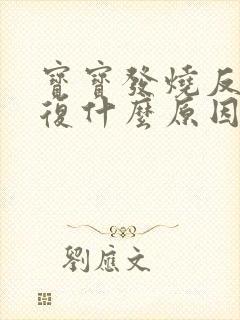 寶寶發燒反
復什麼原因
劉應文